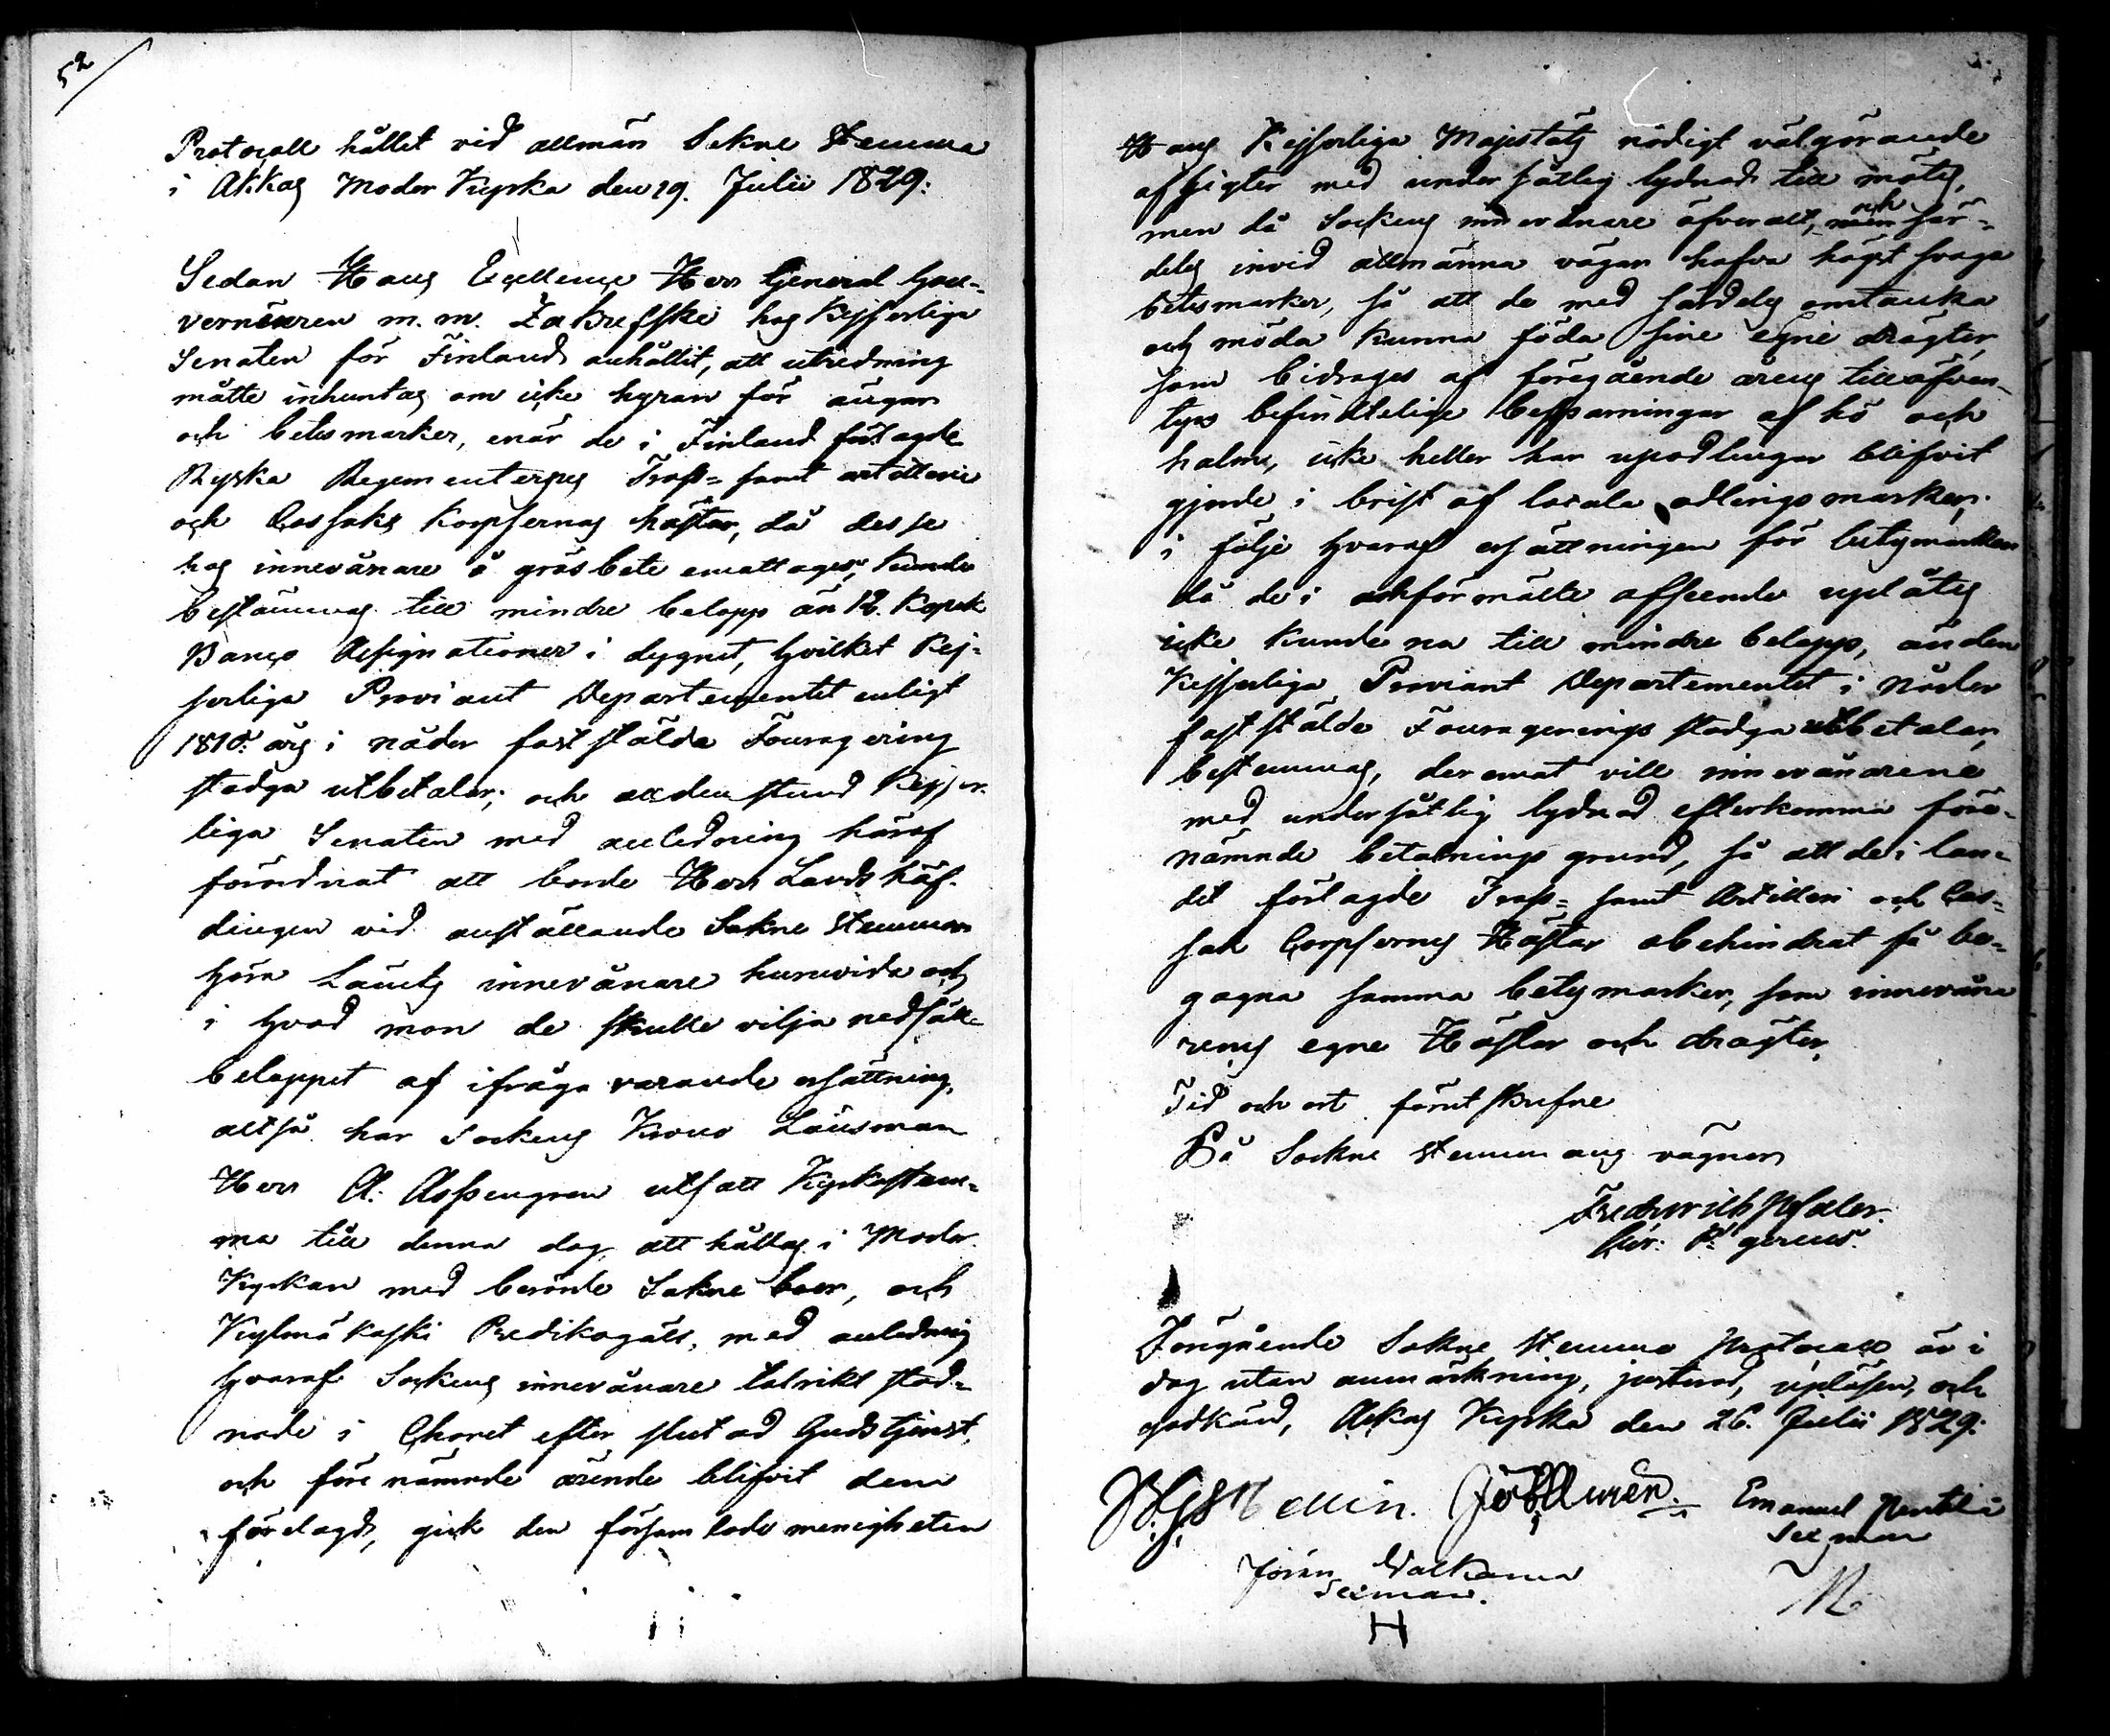 52
Protocoll hållet vid allmän Sokne Stemma
i Akkas Moder Kyrka den 19. Julii 1829.
Sedan Hans Excellence Herr General Gou-
verneuren m. m. Zakrefski hos Kejserliga
Senaten för Finland anhållit, att utredning
måtte inhemtas om icke hyran för ängar
och betesmarker, enär de i Finland förlagde
Ryska Regementernes Trofs- samt artillerie
och Cossaks Korpsernas hästar, då desse
hos innevånare å gräsbete emottages, kunde
bestämmas till mindre belopp än 12. Kopek
Banco Assignationer i dygnet, hvilket Kej-
serliga Proviant Departementet enligt
1810. års i nåder fastställda Fouragering
stadga utbetalar; och alldenstund Kejser-
liga Senaten med anledning häraf
förordnat att borde Herr Landshöf-
dingen vid anställande Sokne Stemmor
höra Länets innevånare huruvida och
i hvad mon de skulle vilja nedsätta
beloppet af ifråga varande ersättning,
altså har Sockens Krono Länsman
Herr A. Aspengren utsatt Kyrkostem-
ma till denna dag att hållas i Moder
Kyrkan med berörde Sokne boer, och
Kylmäkoski Predikogäll, med anledning
hvaraf Sockens innevånare talrikt stad-
nade i Choret efter slutad Gudstjenst,
och förenämnde ärende blifvit dem
förelagdt, gick den församlade menigheten
Hans Kejserliga Majestäts nådigt välgörande
afsigter med undersåtlig lydnad till mötes,
men då Sockens innevånare öfveralt, och sär-
deles invid allmänna vägen hafva högst svaga
betesmarker, så att de med särdeles omtanka
och möda kunna föda sine egne dragter,
som bidrages af föregående årens till äfven-
tyrs befindtelige besparningar af hö och
halm, icke heller har upodlingar blifvit
gjorde i brist af locala odlings marker,
i följe hvaraf ersättningen för betesmarken
då de i anförmälte afseende uplåtes
icke kunde na till mindre belopp, än den
Kejserliga Proviant Departementet i nåder
fastställde Fouragerings stadga utbetalar,
bestemmas, deremot vill innevånarene
med undersåtlig lydnad efterkomma före-
nämnde betalnings grund, så att de i lan-
det förlagde Trofs- samt Artilleri och Cos-
sak Corpsernes Hästar obehindrat få be-
gagna samma betesmarker, som innevåna
renes egne Hästar och dragter.
Tid och ort förutskrefne
På Sockne stemmans vägnar
Föregående Sokne stemmo Protocoll är i
dag utan anmärkning, justerad, upläsen, och
godkänd, Ackas Kyrka den 26. Julii 1829.
Emanuel Penttilä
Sexman
Jöran Walkama
Sexman.